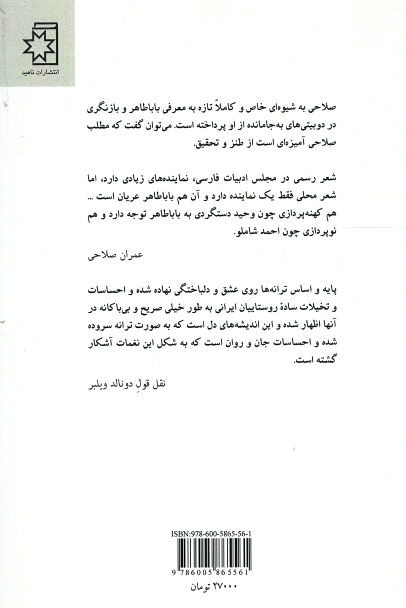 انتشارات ناهید
صلاحی به شیوه‌ای خاص و کاملاً تازه به معرفی باباطاهر و بازنگری
در دوبیتی‌های به‌جامانده از او پرداخته است. می‌توان گفت که مطلب
صلاحی آمیزه‌ای است از طنز و تحقیق.
شعر رسمی در مجلس ادبیات فارسی، نماینده‌های زیادی دارد، اما
شعر محلی فقط یک نماینده دارد و آن هم باباطاهر عریان است ...
هم کهنه‌پردازی چون وحید دستگردی به باباطاهر توجه دارد و هم
نوپردازی چون احمد شاملو.
عمران صلاحی
پایه و اساس ترانه‌ها روی عشق و دلباختگی نهاده شده و احساسات
و تخیلات سادهٔ روستاییان ایرانی به طور خیلی صریح و بی‌باکانه در
آنها اظهار شده و این اندیشه‌های دل است که به صورت ترانه سروده
شده و احساسات جان و روان است که به شکل این نغمات آشکار
گشته است.
نقل قولِ دونالد ویلبر
ISBN:978-600-5865-56-1
9 786005 865561
۲۷۰۰۰ تومان